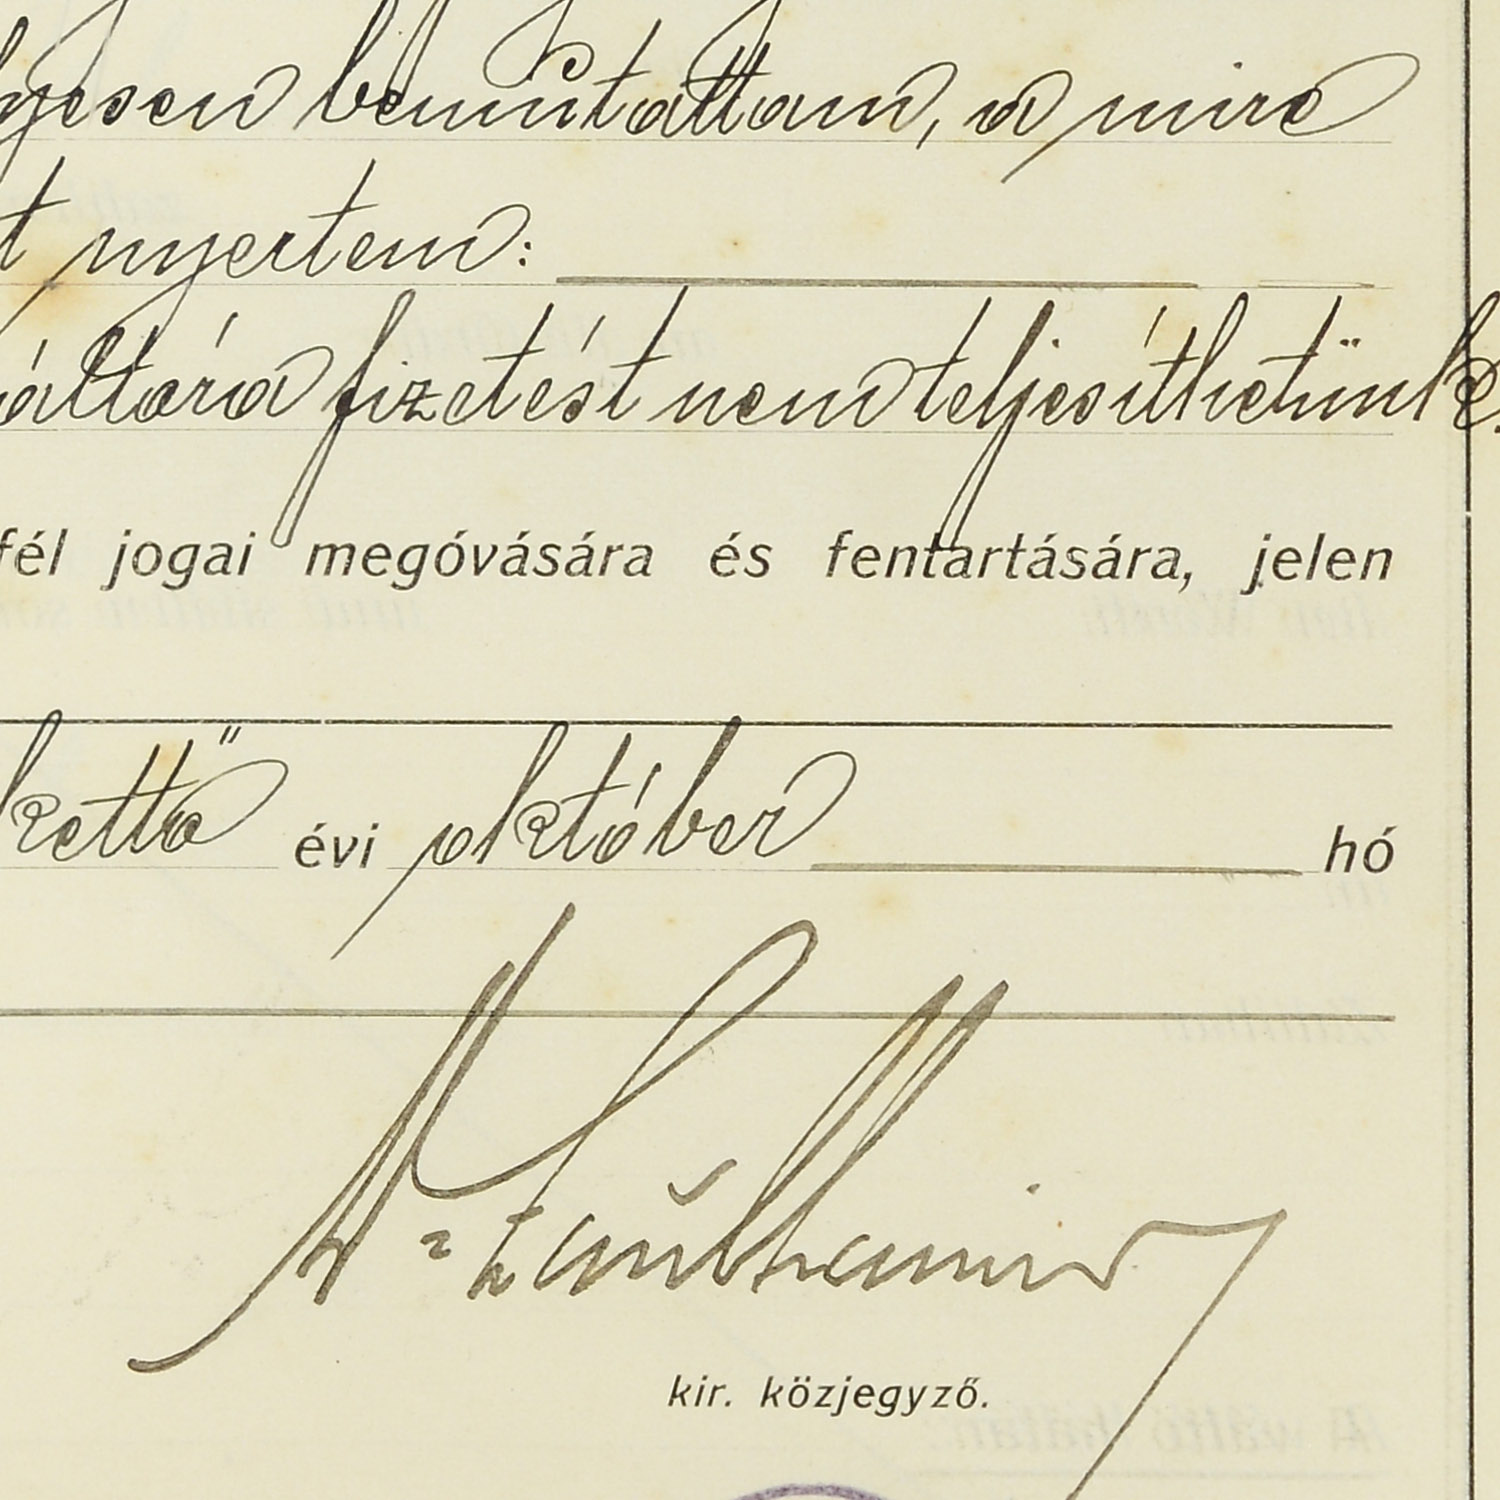 lyesen bemutattam, a mire
t nyertem:
áltára fizetést nem teljesíthetünk.
fél jogai megóvására és fentartására, jelen
kettő évi október hó
kir. közjegyző.